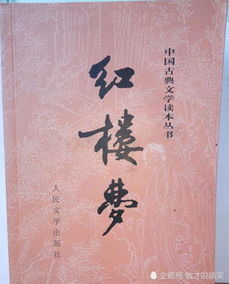 中国古典文学读本丛书
红楼梦
人民文学出版社
企鹅号 敏才说搞笑